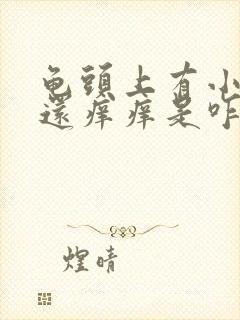 龟頭上有小
還痒痒是咋
煌晴